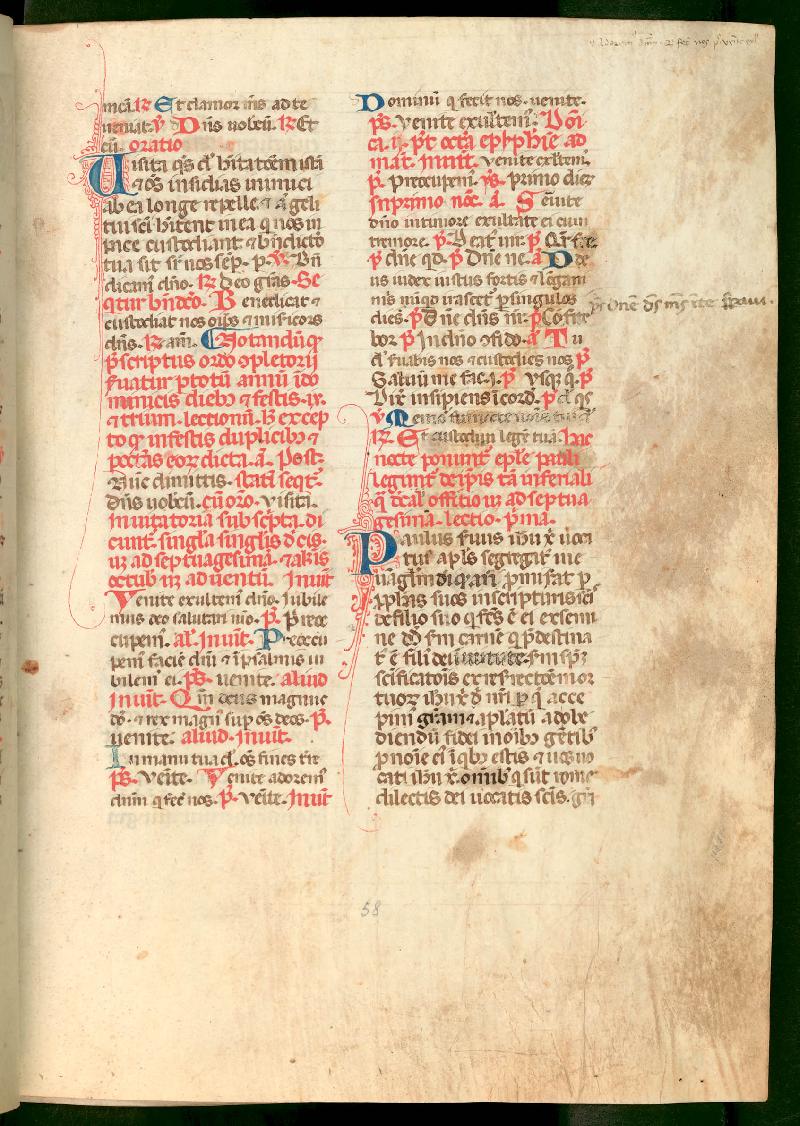 meā. ℟ Et clamor m̄s ad te
ueniat. ℣ Dn̄s uobcū. ℟ Et
cū oratio
Uisita qs̄ dn̄e hītatōem istā
⁊ oēs insidias inimici
ab ea longe repelle ⁊ āgeli
tui sci hītent in ea q̄ nos in
pace custodiant ⁊ bn̄dictō
tua sit sr̄ nos sēp. p. ℣. Bn̄
dicam̄ dn̄o. ℟ deo grās. Se
qtur bn̄deō. Benedicat ⁊
custodiat nos oīps ⁊ misicors
dn̄s. ℟ am̄. Notandū q
p̄scriptus ordo 9pletorij
fuatur p totū annū ī do
minicis dieb3 ⁊ festis. ix.
⁊ trium. lectionū. H excep
to q infestis duplicib3 ⁊
poc̄tas eo℞ dicta. ā. Post.
Nūc dimittis. statī seqt̄.
Dn̄s uobcū. cū or̄o. visitā.
Inuitatoria subsc̄pta. di
cunt̄. singla singlis dēis.
usq; ad septuagesimā. ⁊ ab is
octub usq; ad uentū. Inuit
Venite exultem̄ dn̄o. Iubile
mus deo salutari nr̄o. p̄. Preoc
cupem̄. al̄. Inuit̄. Preoccu
pem̄ faciē dn̄i ⁊ ī psalmis iu
bilem̄ ei. ps̄. uenite. aliud
Inuit̄. Qm̄ deus magnus
dn̄s. ⁊ rex magn̄ sup oēs deos. p̄.
uenite. aliud. inuit̄.
In manu tua dn̄e. oēs fines tr̄e
ps̄. veīte. Venite adorem̄
dn̄m q fec̄ nos. p̄. veīte. Inuit̄
Dominū q fecit nos. uenite.
ps̄. venite exultem̄. Doī
ca. i. pt̄ octā epȳphie ad
mat̄. Inuit̄. venite exltem̄.
p̄. Preocupem̄. ys̄. primo dieȝ
In primo noc̄. ā. Seruite
dn̄o in timore exultate ei cum
tremore. p̄. Beat̄ uir. p̄ Qr̄ fre.
p̄ dn̄e qd. p̄ Dn̄e ne. ā De
us iudex iustus fortis ⁊ lōgani
mis nūqd irascet̄ p singulos
dies. p̄ Dn̄e dn̄s nr̄. p̄ Cōfite
bor p̄ In dn̄o 9fido. ā Tu
dn̄e suabis nos ⁊ custodies nos p̄
Saluū me fac. i. p̄ vsqq̄. p̄
Dix̄ insipiens ī cord. p̄ dn̄e qs
℣ Memor fui nocte nois tui dn̄e
℟. Et custodiui legē tuā. hac
nocte ponunt̄ eple pauli
legunt̄ de ipīs tā inferiali
q̄ dcāl offitio usq; ad septua
gesimā. lectio. p̄ma.
Paulus seruus ihu x̄ uoca
tus apl̄s segregat̄ in e
uāglm̄ di qd añ promisat p
pphās suos in scripturis scīs
de filio suo q fcs̄ ē ei ex semi
ne dd fm̄ carnē q p̄destina
t̄ ē fili dei in uirtute. fm̄ spm̄
scificatōis ex resrectōe mor
tuo℞ ihu x̄ d nr̄i p q acce
pim̄ gr̄am ⁊ aplatū ad obe
diendū fidei in oib3 gētib3
p noie ei ī qb3 estis ⁊ uos uo
cati ihu x̄. omib3 q sūt rome
dilectis dei uocatis scīs. gr̄a
58